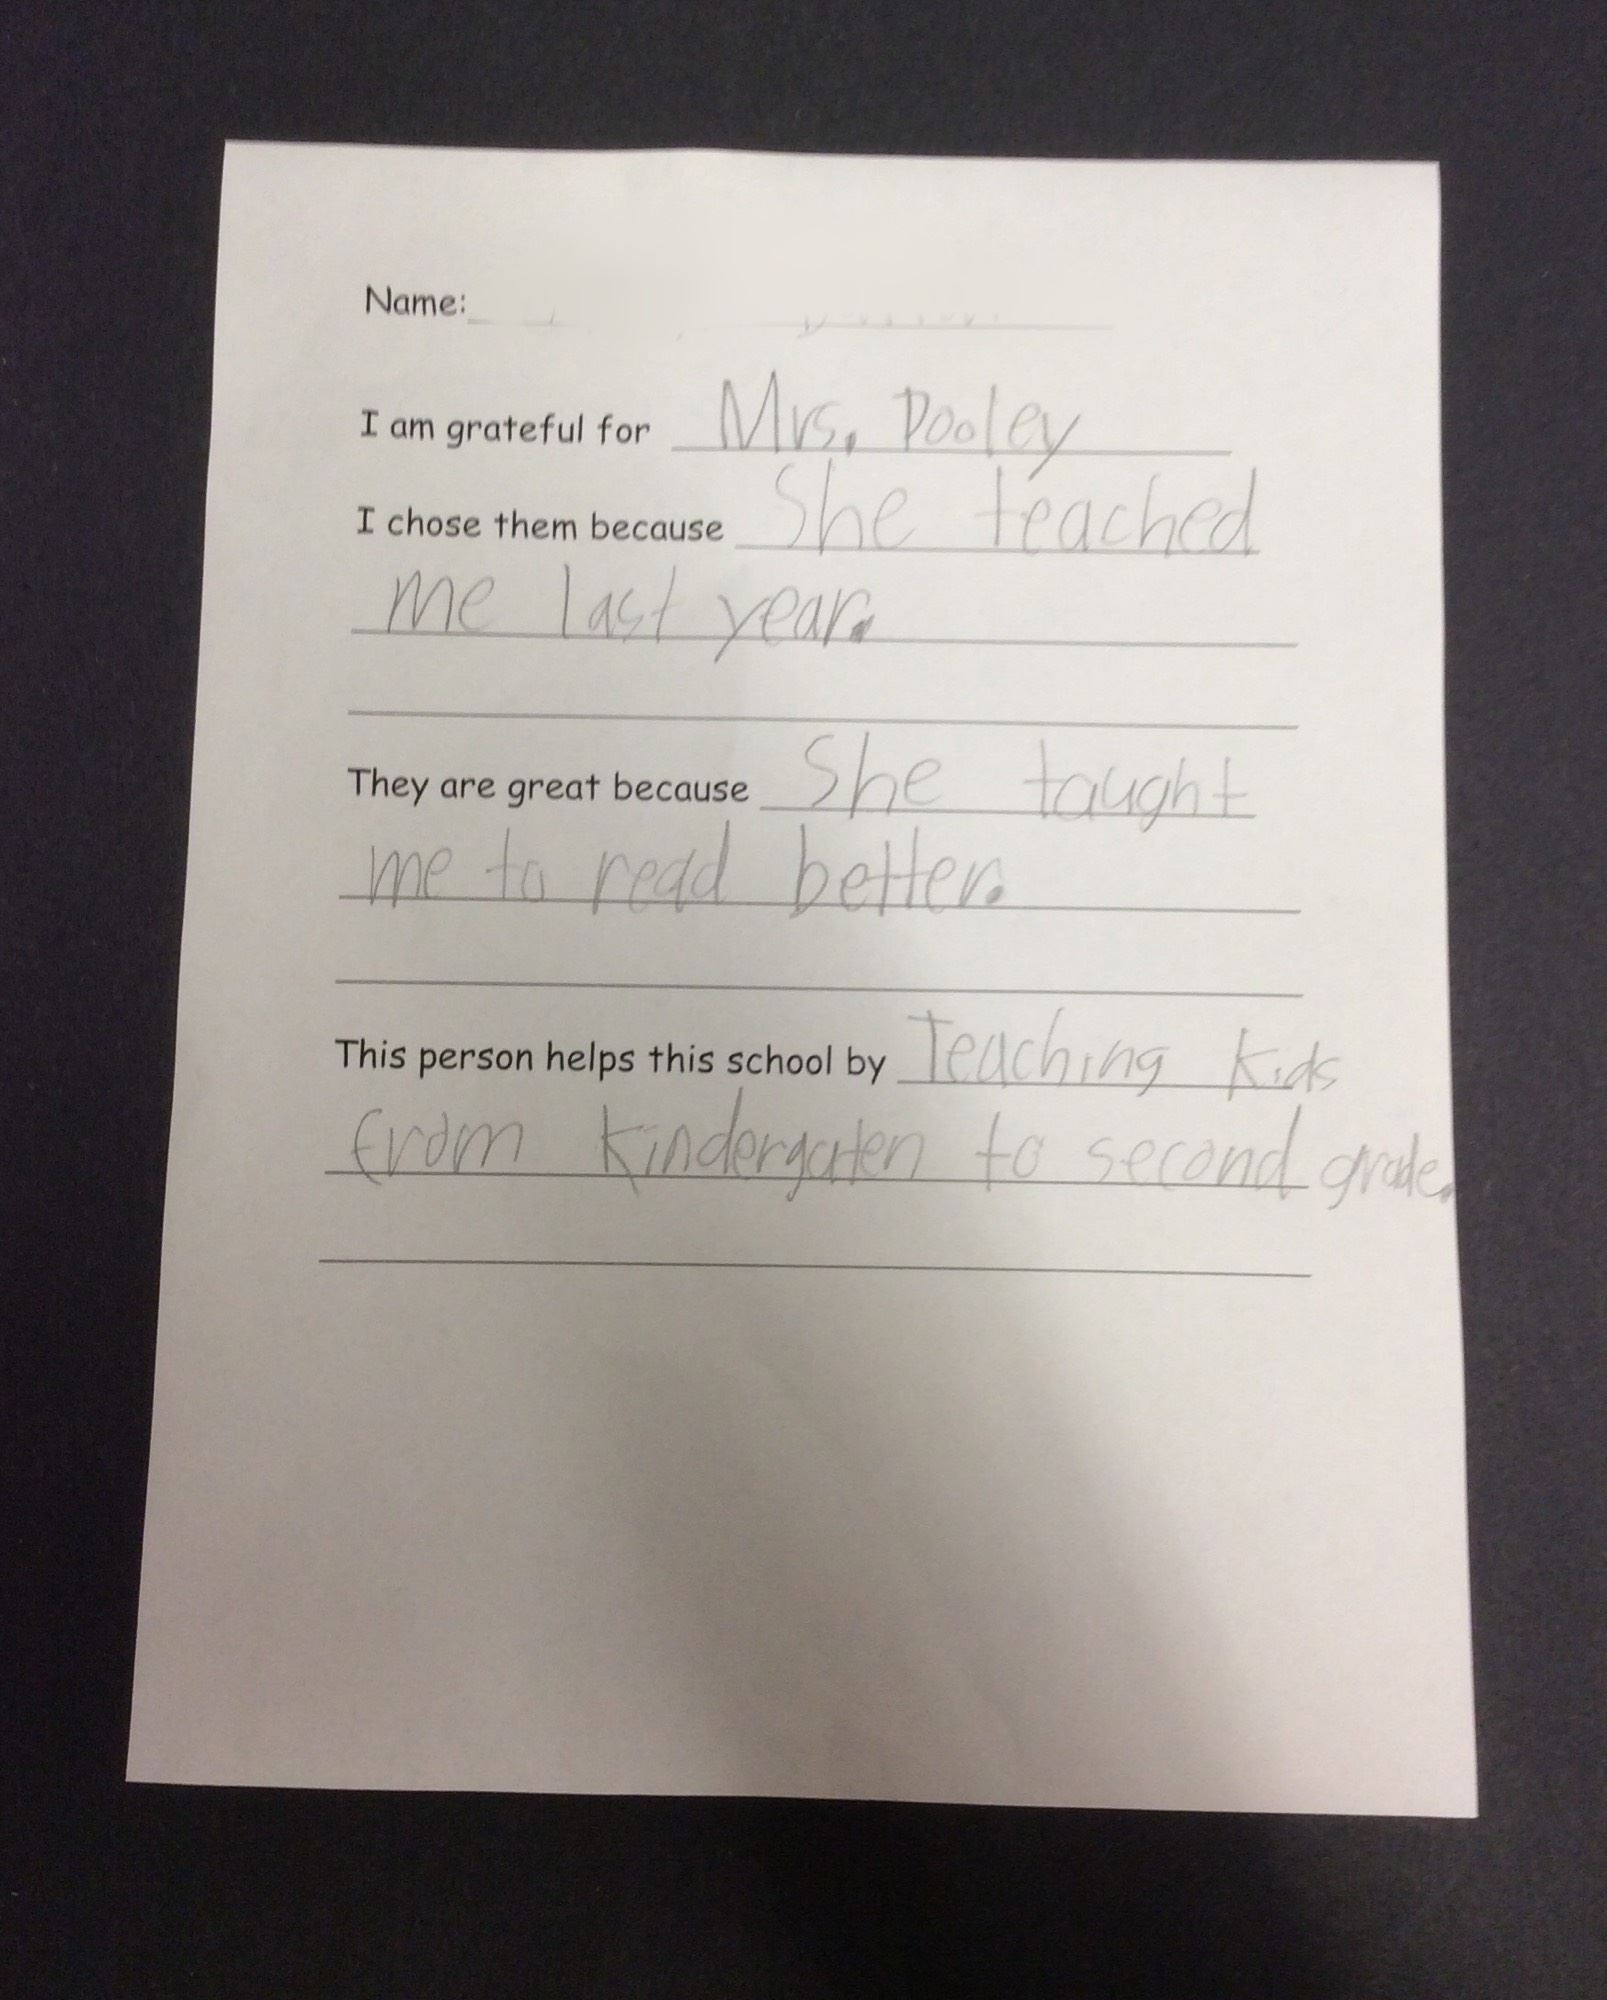 Name:
I am grateful for Mrs. Pooley
I chose them because She teached
me last year.
They are great because She taught
me to read better.
This person helps this school by Teaching kids
from kindergarten to second grade.